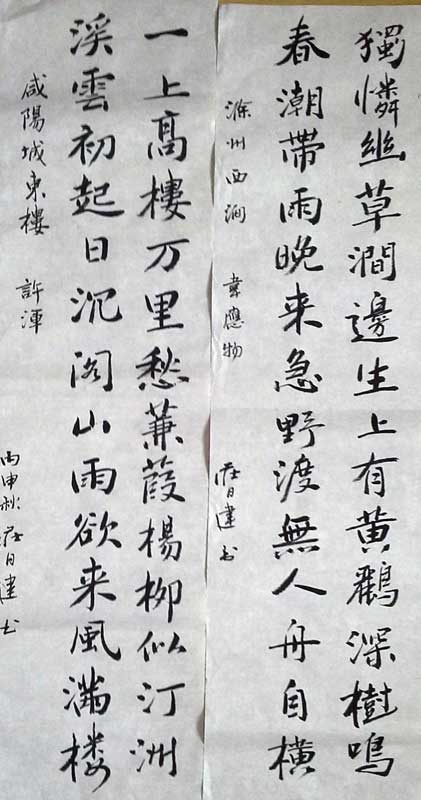 獨憐幽草澗邊生上有黄鸝深樹鳴
春潮帶雨晚来急野渡無人舟自横
滁州西澗 韋應物 莊日建书
一上高樓万里愁蒹葭楊柳似汀洲
溪雲初起日沉阁山雨欲来風满楼
咸陽城東樓 許渾
丙申秋莊日建书